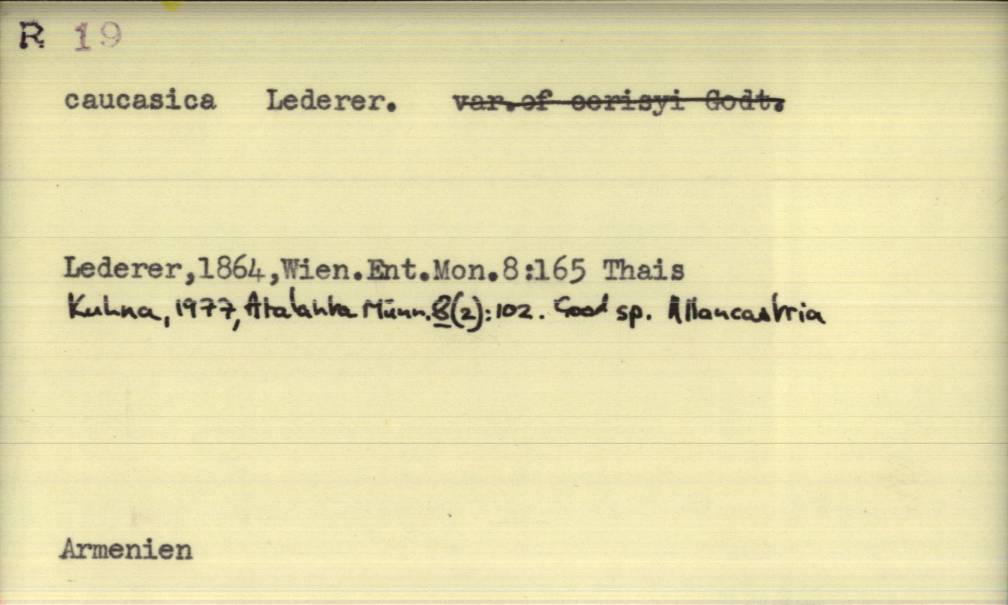 R 19
caucasica Lederer. var.of cerisyi Godt.
Lederer,1864,Wien.Ent.Mon.8:165 Thais
Kuhna, 1977, Atalanta Münn. 8(2):102. Good sp. Allancastria
Armenien